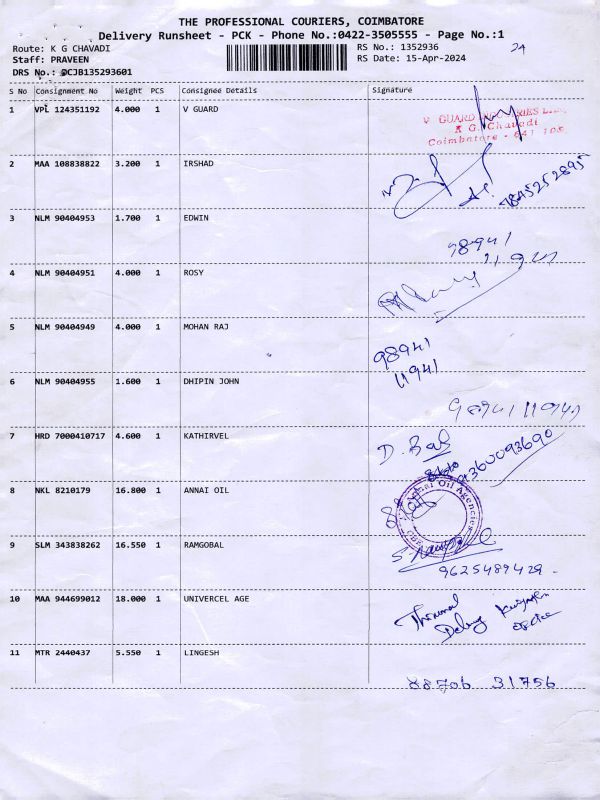 THE PROFESSIONAL COURIERS, COIMBATORE
Delivery Runsheet - PCK - Phone No.:0422-3505555 - Page No.:1
Route: K G CHAVADI RS No.: 1352936
Staff: PRAVEEN RS Date: 15-Apr-2024
DRS No.: DCJB135293601
S No Consignment No Weight PCS Consignee Details Signature
1 VPL 124351192 4.000 1 V GUARD
V GUARD INDUSTRIES
K G. Chavadi
Coimbatore - 641 105
2 MAA 108838822 3.200 1 IRSHAD
7845252895
3 NLM 90404953 1.700 1 EDWIN
98941
11941
4 NLM 90404951 4.000 1 ROSY
5 NLM 90404949 4.000 1 MOHAN RAJ
98941
11941
6 NLM 90404955 1.600 1 DHIPIN JOHN
98941 11941
7 HRD 7000410717 4.600 1 KATHIRVEL
D. Bal
9360093690
8 NKL 8210179 16.800 1 ANNAI OIL
Annai Oil Agencies
9 SLM 343838262 16.550 1 RAMGOBAL
9625489429
10 MAA 944699012 18.000 1 UNIVERCEL AGE
office
11 MTR 2440437 5.550 1 LINGESH
88706 31756